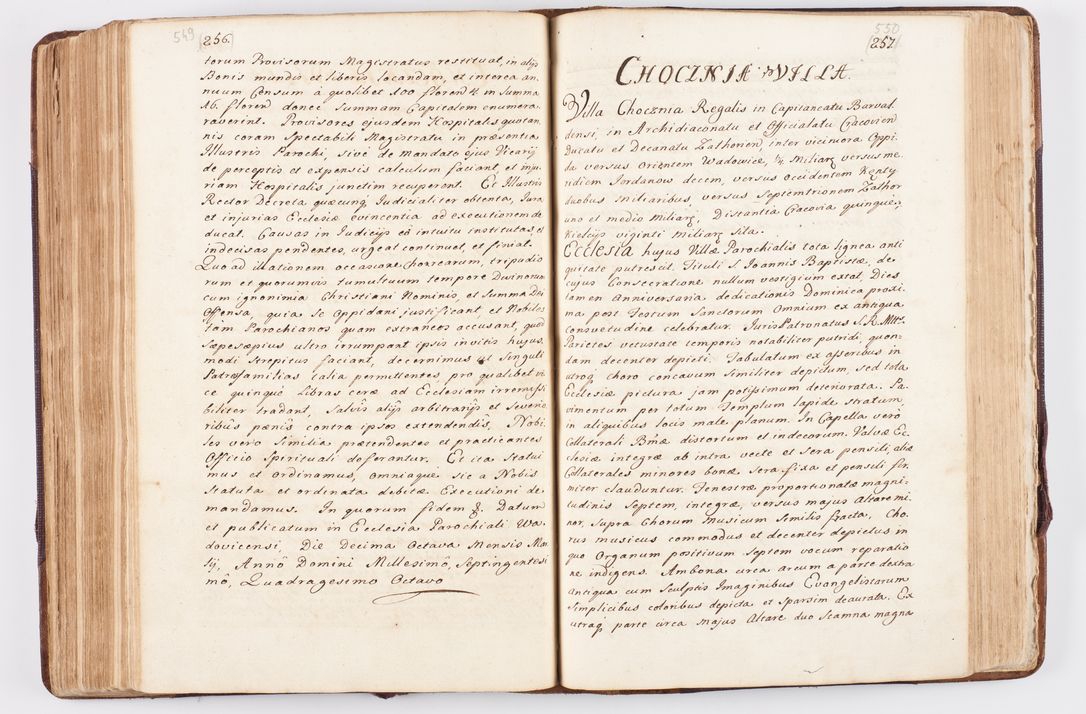 549
256.
torum Provisorum Magistratus restituat, in alijs
Bonis mundis et liberis locandam, et interea an
nuum Censum à quolibet 100 floren 4 in Summa
16. floren donec Summam Capitalem enumera,
raverint. Provisores ejusdem Hospitalis quotan,
nis coram Spectabili Magistratu in præsentia
Illustris Parochi, sivè de mandato ejus Vicarij
de perceptis et expensis calculum faciant, et inju,
riam Hospitalis junctim recuperent. Et Illustris
Rector Decreta quæcunq Judicialiter obtenta, Jura
et injurias Ecclesiæ evincentia ad executionem de
ducat. Causas in Judicijs eâ intuitu institutas, et
indecisas pendentes, urgeat continuet, et finiat.
Quo ad illationem occasione chorearum, tripudio
rum et quorumvis tumultuum tempore Divinorum
cum ignominia Christiani Nominis, et Summa Dei
Offensa, quia se Oppidani justificant, et Nobiles
tam Parochianos quam extraneos accusant, quod
sæpesæpius ultro irrumpant ipsis invitis hujus,
modi Strepitus faciant, decernimus ut Singuli
Patresfamilias talia permittentes, pro qualibet vi
ce quinque Libras ceræ ad Ecclesiam irremissi
biliter tradant, Salvis alijs arbitrarijs et severio
ribus pænis contra ipsos extendendis, Nobi,
les vero Similia prætendentes et practicantes
Officio Spirituali deferantur. Et ita Statui
mus et Ordinamus, omniaque sic a Nobis
Statuta et ordinata debitæ Executioni de
mandamus. In quorum fidem &. Datum
et publicatum in Ecclesia Parochiali Wa,
dovicensi, Die Decima Octava Mensis Ma
ij, Annô Domini Millesimô, Septingentesi
mô, Quadragesimo Octavo
550
257.
CHOCZNIA VILLA.
Villa Chocznia Regalis in Capitaneatu Barval
densi, in Archidiaconatu et Officialatu Cracovien
Ducatu et Decanatu Zathorien, inter viciniora Oppi
da versus Orientem Wadowice, 1/4 Miliarg versus me,
ridiem Jordanow decem, versus Occidentem Kenty
duobus Miliaribus, versus Septemtrionem Zathor
uno et medio Miliarg; Distantia Cracovia quinque,
Kielcijs viginti Miliarg sita.
Ecclesia hujus Villæ Parochialis tota lignea anti
quitate putrescit. Tituli S. Joannis Baptistæ, de
cujus Consecratione nullum vestigium extat, Dies
tamen Anniversaria dedicationis Dominica proxi,
ma post Festum Sanctorum Omnium ex antiqua
consvetudine celebratur. Juris Patronatus S. R. Mttis
Parietes vetustate temporis notabiliter putridi, quon,
dam decenter depicti. Tabulatum ex asseribus in
utroq choro concavum similiter depictum, sed tota
Ecclesiæ pictura jam potissimum deteriorata. Pa,
vimentum per totum Templum lapide stratum,
in aliquibus locis male planum. In Capella verò
Collaterali Bmæ distortum et indecorum. Valvæ Ec,
clesiæ integræ ab intra vecte et sera pensili, aliæ
Collaterales minores bonæ, sera fixa et pensili fir,
miter clauduntur. Fenestræ proportionatæ magni,
tudinis septem, integræ, versus majus Altare mi
nor, Supra Chorum Musicum Similis fracta, Cho,
rus musicus commodus et decenter depictus in
quo Organum positivum septem vocum reparatio
ne indigens. Ambona circa arcum a parte dextra
Antiqua cum Sculptis Imaginibus Evangelistarum
Simplicibus coloribus depicta et sparsim deaurata. Ex
utraq parte circa majus Altare duo Scamna magna